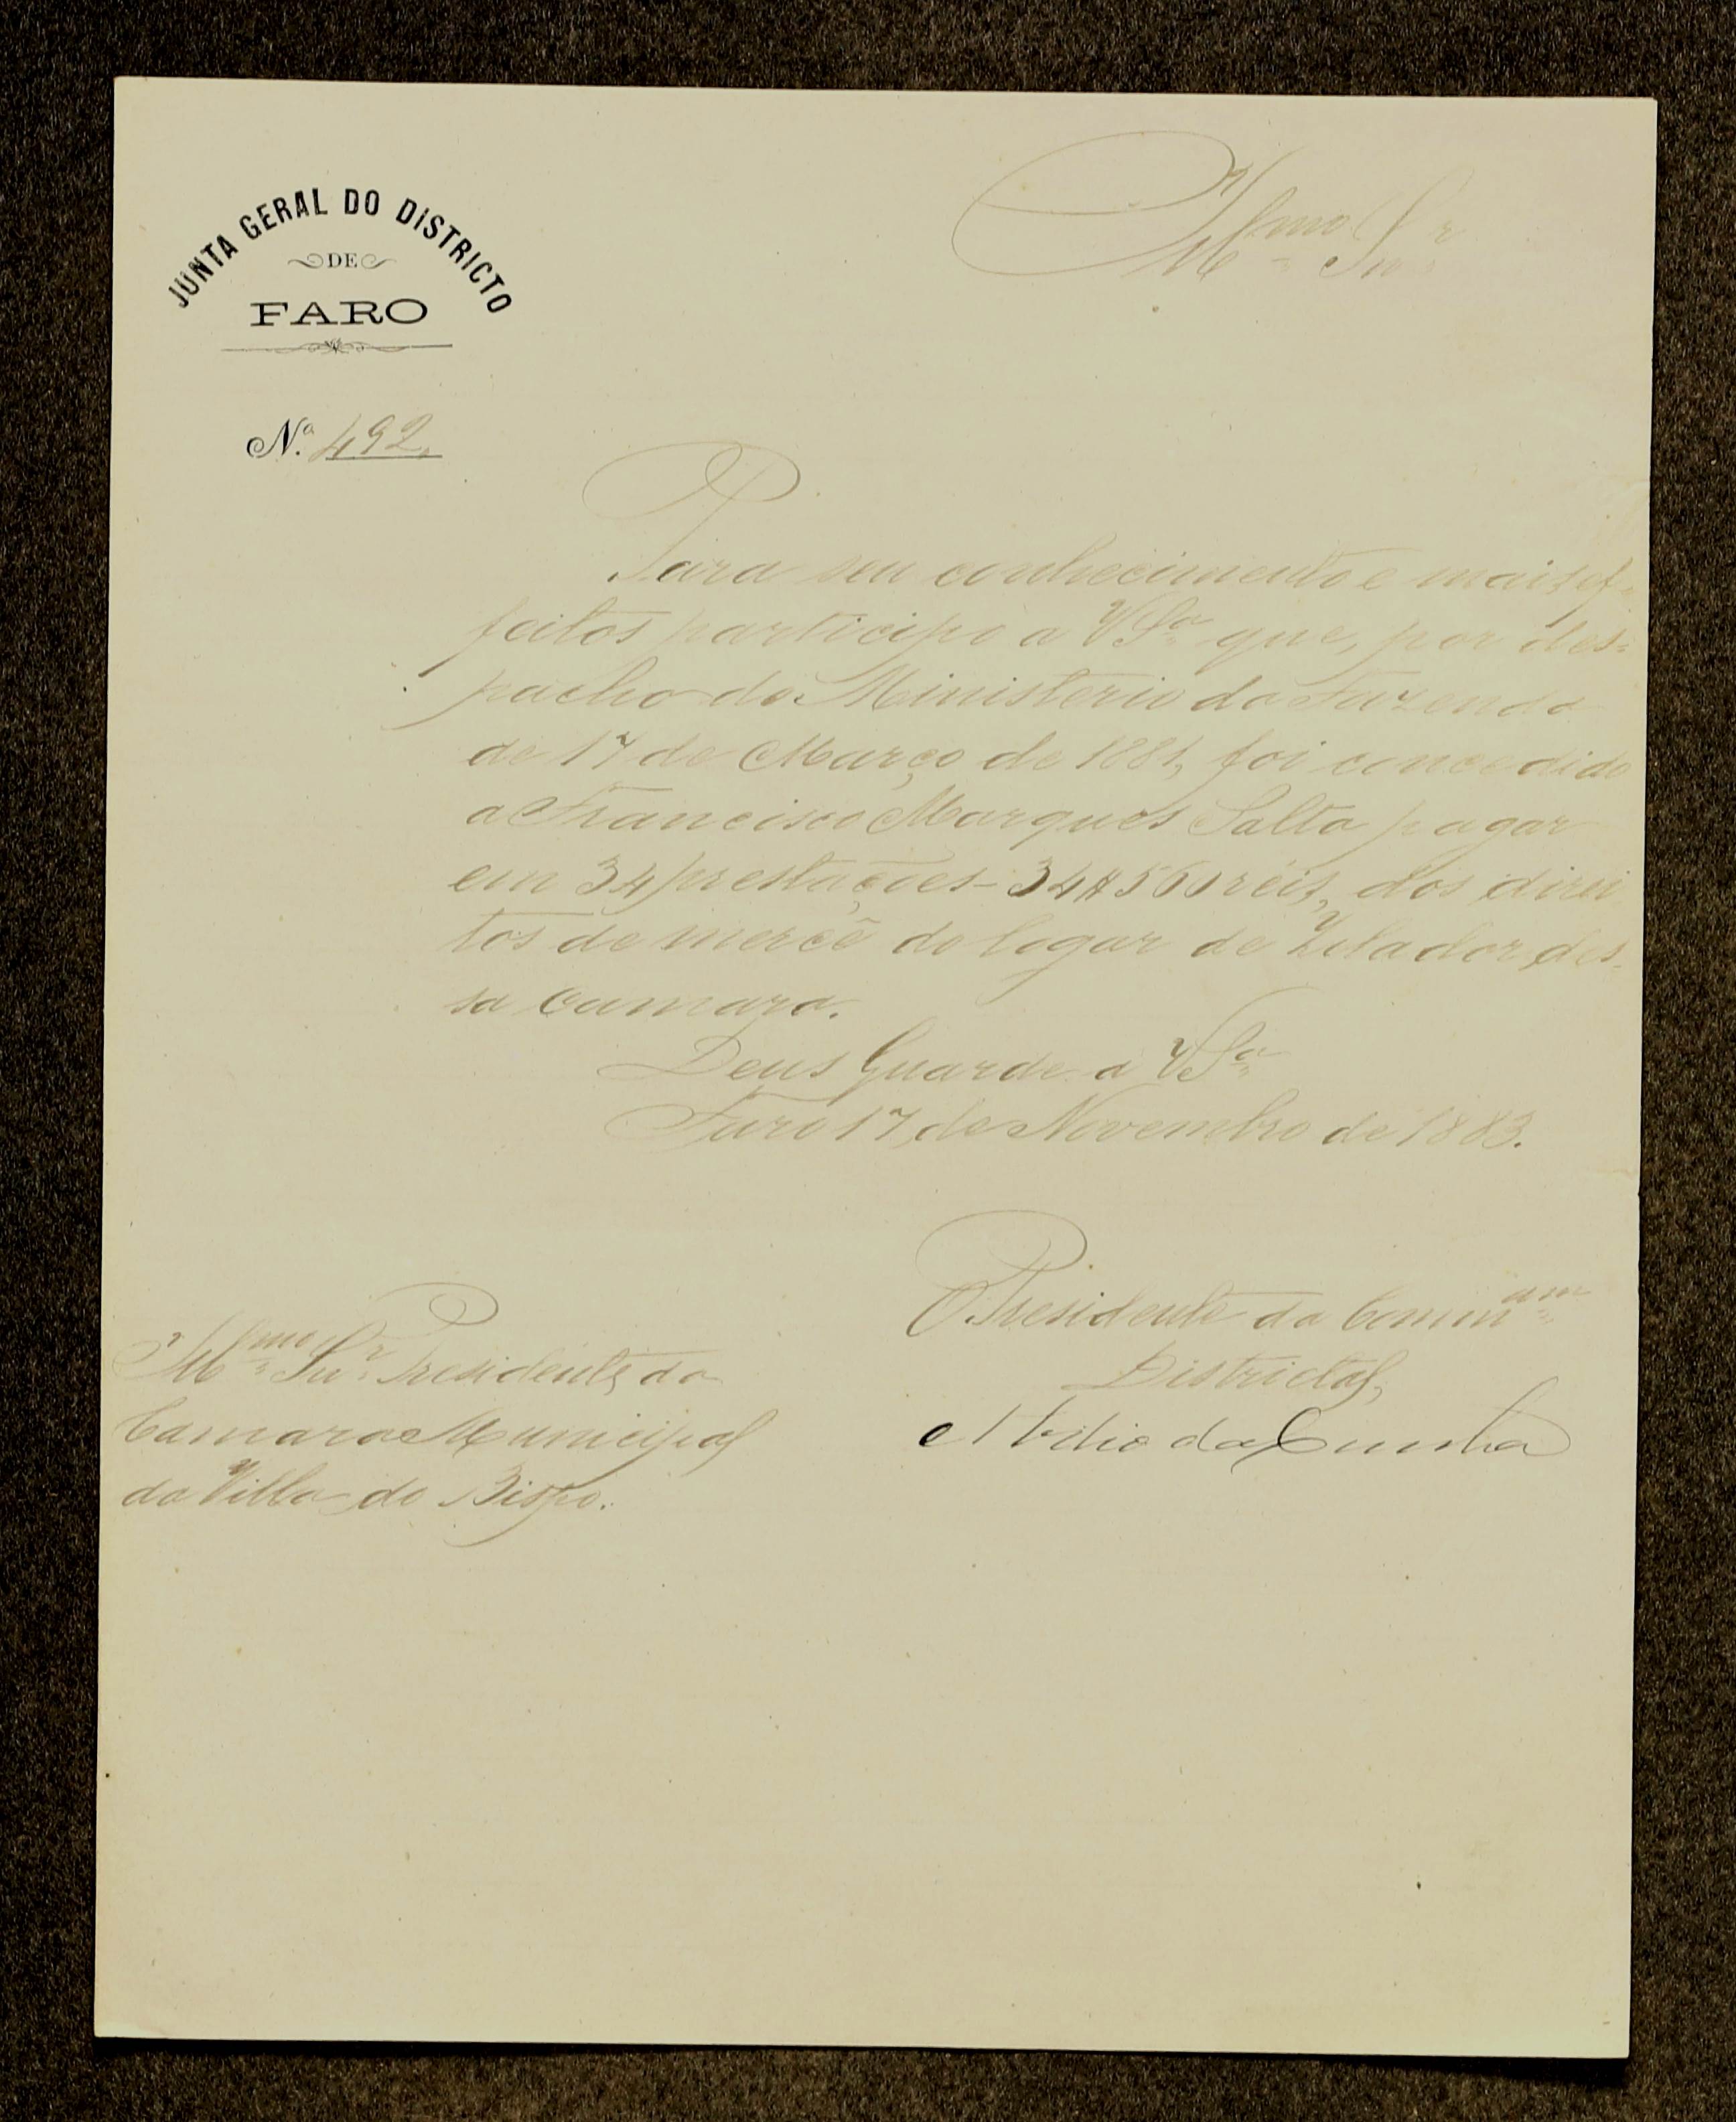 JUNTA GERAL DO DISTRICTO
DE
FARO
Nº 492.
Illmo Snr
Para seu conhecimento e mais ef-
feitos participo a VSa que, por des=
pacho do Ministerio da Fazenda
de 17 de Março de 1881, foi concedido
a Francisco Marques Salta pagar
em 34 prestações - 34$560 réis, dos direi
tos de mercê do logar de Zelador des-
sa Camara.
Deus Guarde a VSa
Faro 17 de Novembro de 1883.
O Presidente da Commam
Districtal,
Abilio da Cunha
Illmo Snr Presidente da
Camara Municipal
da Villa do Bispo.